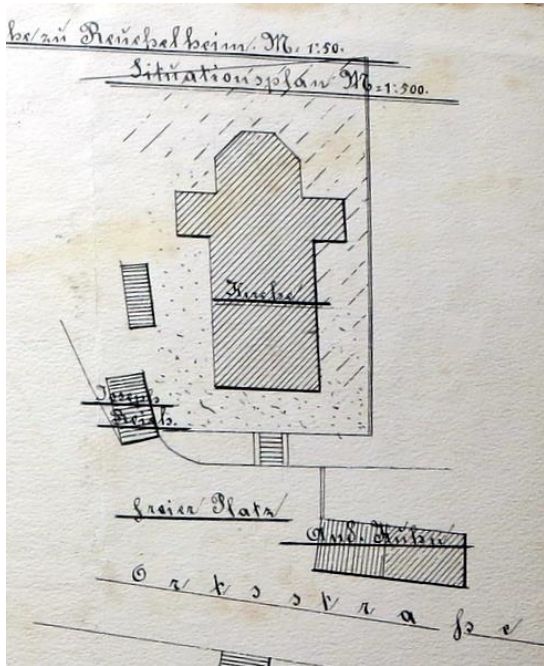 he zu Reuchelheim. M. 1:50.
Situationsplan M=1:500.
Kirche
Joseph
Reich.
freier Platz
And. Kuhn
Ortsstraße